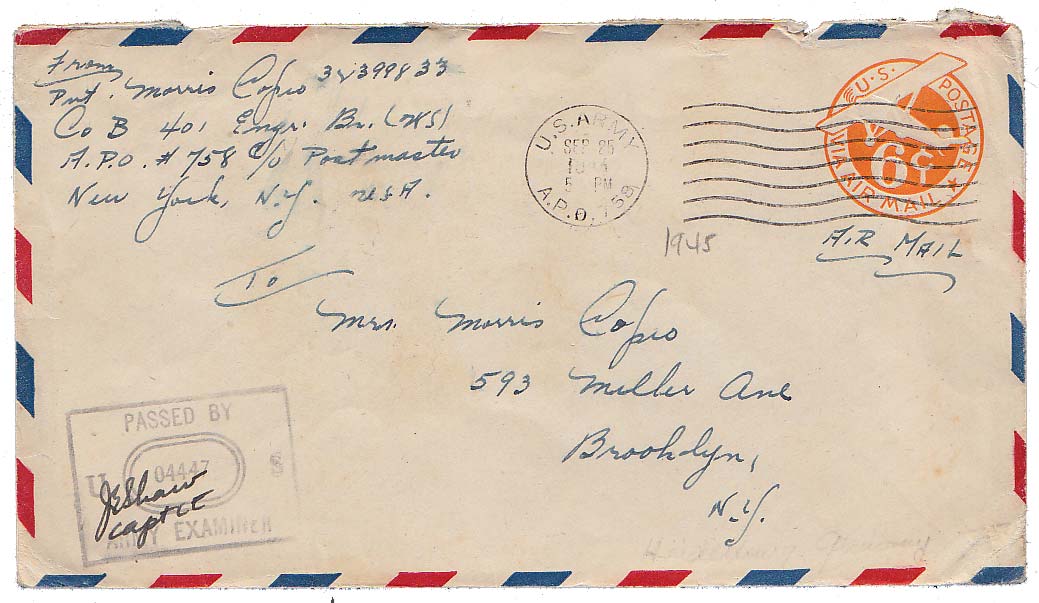 From
Pvt. Morris Copio
Co B 401 Engr. Bn. (WS)
A.P.O. # 758 c/o Postmaster
New York, N.Y. USA.
U.S. ARMY
SEP 25
5 PM
A.P.O. 758
U.S. POSTAGE
6¢
VIA AIR MAIL
1945
AIR MAIL
To
Mrs. Morris Copio
593 Miller Ave
Brooklyn,
N.Y.
PASSED BY
U 04447 S
ARMY EXAMINER
JEShaw
Capt CE